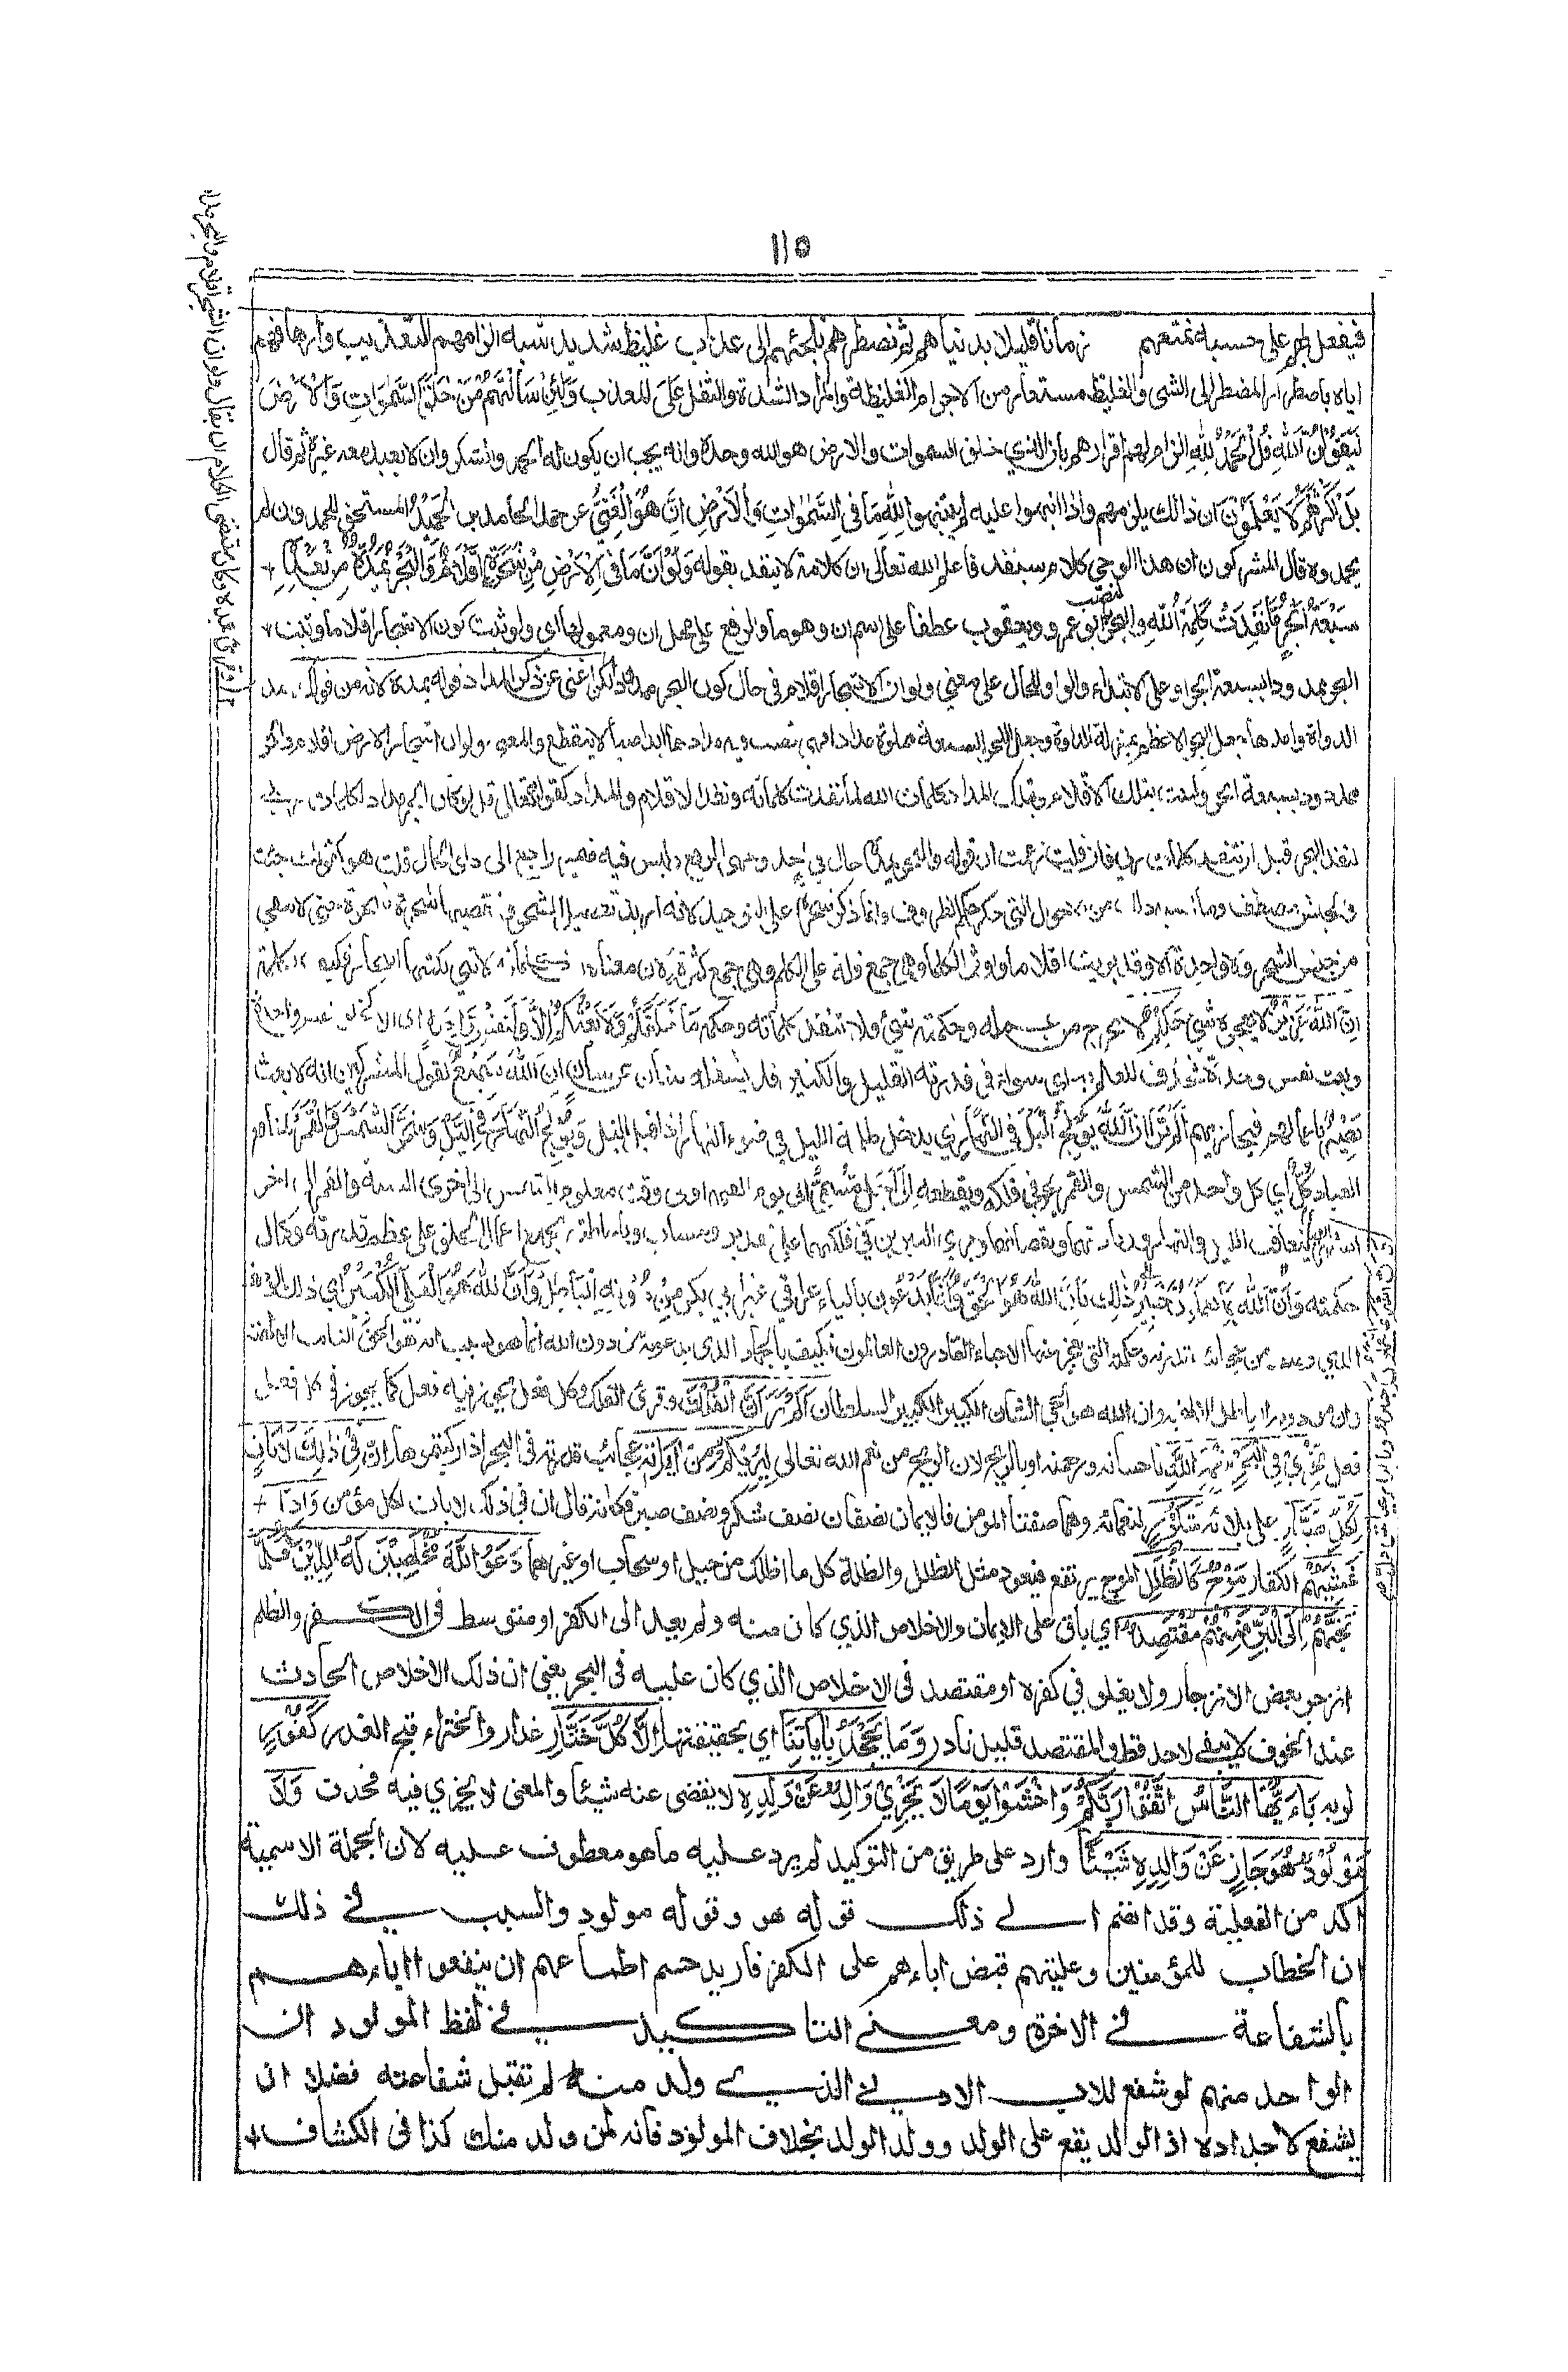 ١١٥
فيفعل بهم على حسبه نمتعهم زمانا قليلا بدنياهم ثم نضطرهم نلجئهم الى عذاب غليظ شديد شبه الزامهم التعذيب وارهاقهم
اياه باضطرار المضطر الى الشئ والغليظ مستعار من الاجرام الغليظة والمراد الشدة والثقل على المعذب وَلَئِنْ سَأَلْتَهُمْ مَنْ خَلَقَ السَّمٰوَاتِ وَالْاَرْضَ
لَيَقُوْلُنَّ اللّٰهُ قُلِ الْحَمْدُ لِلّٰهِ الزام لهم اقرارهم بان الذي خلق السموات والارض هو الله وحده وانه يجب ان يكون له الحمد والشكر وان لا يعبد معه غيره ثم قال
بَلْ اَكْثَرُهُمْ لَا يَعْلَمُوْنَ ان ذالك يلزمهم واذا انبهوا عليه لم ينتبهوا لِلّٰهِ مَا فِي السَّمٰوَاتِ وَالْاَرْضِ اِنَّ اللّٰهَ هُوَ الْغَنِيُّ عن حمد الحامدين الْحَمِيْدُ المستحق للحمد وان لم
يحمدوه قال المشركون ان هذا الوحي كلام سينفد فاعلم الله تعالى ان كلامه لا ينفد بقوله وَلَوْ اَنَّ مَا فِي الْاَرْضِ مِنْ شَجَرَةٍ اَقْلَامٌ وَالْبَحْرُ يَمُدُّهُ مِنْ بَعْدِهٖ
سَبْعَةُ اَبْحُرٍ مَا نَفِدَتْ كَلِمٰتُ اللّٰهِ والبحر بالنصب ابو عمرو ويعقوب عطفا على اسم ان وهو ما والرفع على محل ان ومعمولها اي ولو ثبت كون الاشجار اقلاما وثبت
البحر ممدودا بسبعة ابحر او على الابتداء والواو للحال على معنى ولو ان الاشجار اقلام في حال كون البحر ممدودا لكن اغنى عن ذكر المداد قوله يمده لانه من قولك مد
الدواة وامدها جعل البحر الاعظم بمنزلة الدواة وجعل الابحر السبعة مملوة مدادا فهي تصب فيه مدادها ابدا صبا لا ينقطع والمعنى ولو ان اشجار الارض اقلام والبحر
ممدود بسبعة ابحر وكتبت بتلك الاقلام وبذلك المداد كلمات الله لما نفدت كلماته ونفد الاقلام والمداد كقوله تعالى قل لو كان البحر مدادا لكلمات ربي
لنفد البحر قبل ان تنفد كلمات ربي فان قلت زعمت ان قوله والبحر يمده حال في احد وجهي الرفع وليس فيه ضمير راجع الى ذي الحال قلت هو كقولك جئت
والجيش مصطف وما اشبه ذلك من الاحوال التي حكمها حكم الظروف وانما ذكر شجرة على التوحيد لانه اريد تفصيل الشجر وتقصيها شجرة شجرة حتى لا يبقى
من جنس الشجر ولا واحدة الا وقد بريت اقلاما واوثر الكلمات وهي جمع قلة على الكلم وهي جمع كثرة لان معناه ان كلماته لا تفي بكتبها البحار فكيف بكلمه
اِنَّ اللّٰهَ عَزِيْزٌ لا يعجزه شئ حَكِيْمٌ لا يخرج من علمه وحكمته شئ فلا تنفد كلماته وحكمه مَا خَلْقُكُمْ وَلَا بَعْثُكُمْ اِلَّا كَنَفْسٍ وَّاحِدَةٍ اي الا كخلق نفس واحدة
وبعث نفس واحدة فحذف للعلم به اي سواء في قدرته القليل والكثير فلا يشغله شان عن شان اِنَّ اللّٰهَ سَمِيْعٌ لقول المشركين انه لا بعث
بَصِيْرٌ باعمالهم فيجازيهم اَلَمْ تَرَ اَنَّ اللّٰهَ يُوْلِجُ الَّيْلَ فِي النَّهَارِ يدخل ظلمة الليل في ضوء النهار اذا اقبل الليل وَيُوْلِجُ النَّهَارَ فِي الَّيْلِ وَسَخَّرَ الشَّمْسَ وَالْقَمَرَ لمنافع
العباد كُلٌّ اي كل واحد من الشمس والقمر يجري في فلكه ويقطعه اِلٰى اَجَلٍ مُّسَمًّى الى يوم القيمة او الى وقت معلوم الشمس الى اخر السنة والقمر الى اخر
حكمته وَاَنَّ اللّٰهَ بِمَا تَعْمَلُوْنَ خَبِيْرٌ ذٰلِكَ بِاَنَّ اللّٰهَ هُوَ الْحَقُّ وَاَنَّ مَا يَدْعُوْنَ بالياء عراقي غير ابي بكر مِنْ دُوْنِهِ الْبَاطِلُ وَاَنَّ اللّٰهَ هُوَ الْعَلِيُّ الْكَبِيْرُ اي ذلك الوصف
الذي وصف به من عجائب قدرته وحكمته التي يعجز عنها الاحياء القادرون العالمون فكيف بالجماد الذي يدعونه من دون الله انما هو بسبب انه هو الحق الثابت الهيته
وان من دونه باطل الالهية وان الله هو العلي الشان الكبير السلطان اَلَمْ تَرَ اَنَّ الْفُلْكَ وقرئ الفلك وكل فعل يجوز فيه فعل كما يجوز في كل فعل
فعل تَجْرِيْ فِي الْبَحْرِ بِنِعْمَةِ اللّٰهِ باحسانه ورحمته او بالريح لان الريح من نعم الله تعالى لِيُرِيَكُمْ مِّنْ اٰيٰتِهٖ عجائب قدرته في البحر اذا ركبتموها اِنَّ فِيْ ذٰلِكَ لَاٰيٰتٍ
لِّكُلِّ صَبَّارٍ على بلائه شَكُوْرٍ لنعمائه وهما صفتا المؤمن فالايمان نصفان نصف شكر ونصف صبر فكانه قال ان في ذلك لايات لكل مؤمن وَاِذَا
غَشِيَهُمْ الكفار مَوْجٌ كَالظُّلَلِ الموج يرتفع فيعود مثل الظلل والظلة كل ما اظلك من جبل او سحاب او غيرهما دَعَوُا اللّٰهَ مُخْلِصِيْنَ لَهُ الدِّيْنَ فَلَمَّا
نَجّٰهُمْ اِلَى الْبَرِّ فَمِنْهُمْ مُّقْتَصِدٌ اي باق على الايمان والاخلاص الذي كان منه ولم يعد الى الكفر او متوسط في الكفر والظلم
انزجر بعض الانزجار ولا يغلو في كفره او مقتصد في الاخلاص الذي كان عليه في البحر يعني ان ذلك الاخلاص الحادث
عند الخوف لا يبقى لاحد قط والمقتصد قليل نادر وَمَا يَجْحَدُ بِاٰيَاتِنَا اي بحقيقتها اِلَّا كُلُّ خَتَّارٍ غدار والختر اقبح الغدر كَفُوْرٍ
لربه يَاَيُّهَا النَّاسُ اتَّقُوْا رَبَّكُمْ وَاخْشَوْا يَوْمًا لَا يَجْزِيْ وَالِدٌ عَنْ وَلَدِهٖ لا يقضى عنه شيئا والمعنى لا يجزي فيه فحذف وَلَا
مَوْلُوْدٌ هُوَ جَازٍ عَنْ وَالِدِهٖ شَيْئًا وارد على طريق من التوكيد لم يرد عليه ما هو معطوف عليه لان الجملة الاسمية
اكد من الفعلية وقد انضم الى ذلك قوله هو وقوله مولود والسبب في ذلك
ان الخطاب للمؤمنين وعليتهم قبض اباءهم على الكفر فاريد حسم اطماعهم ان ينفعوا اباءهم
بالشفاعة في الاخرة ومعنى التاكيد في لفظ المولود ان
الواحد منهم لو شفع للاب الادنى الذي ولد منه لم تقبل شفاعته فضلا ان
يشفع لاجداده اذ الولد يقع على الولد وولد الولد بخلاف المولود فانه لمن ولد منك كذا في الكشاف